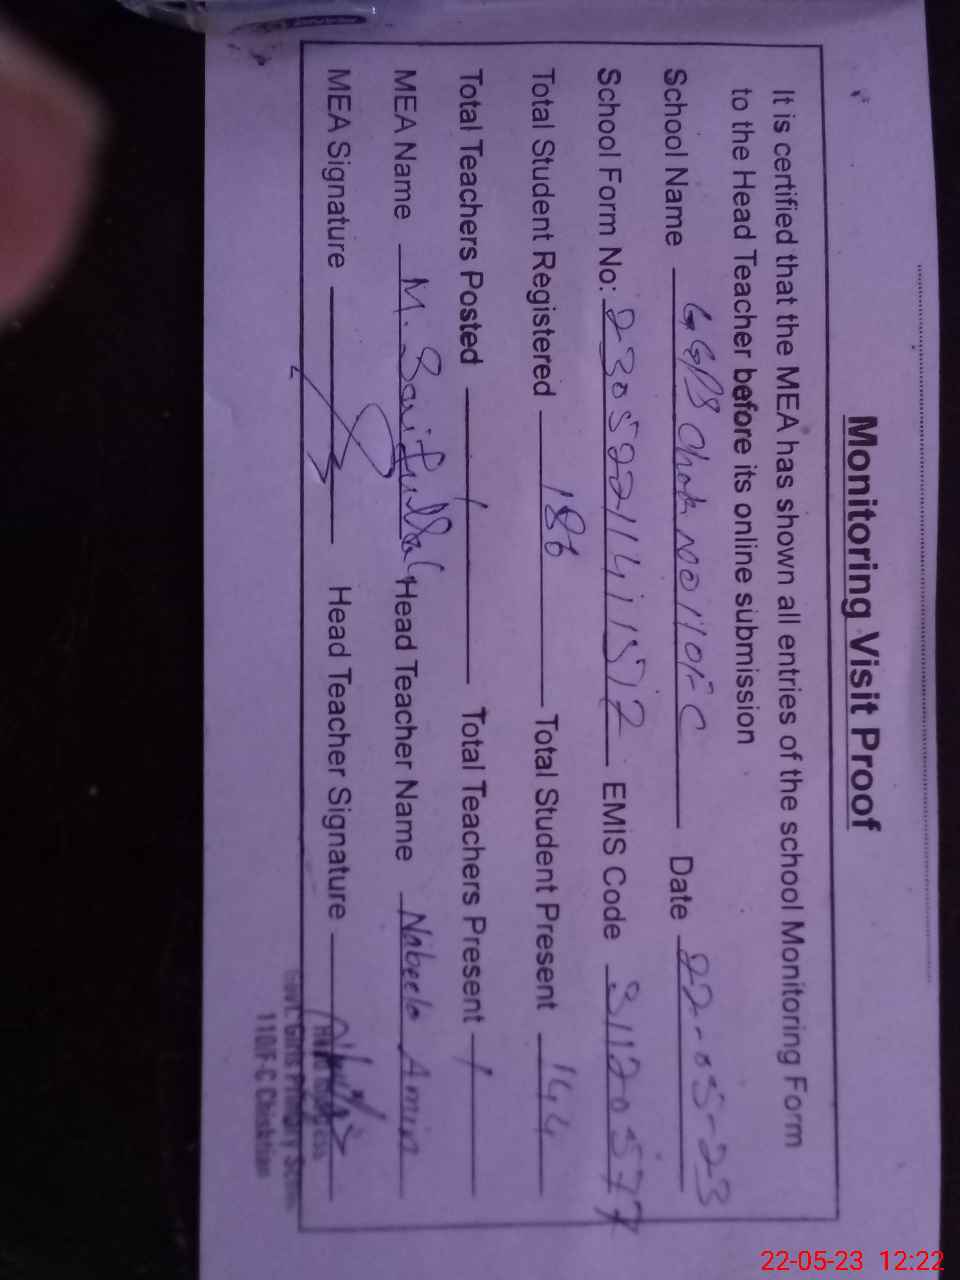 Monitoring Visit Proof
It is certified that the MEA has shown all entries of the school Monitoring Form
to the Head Teacher before its online submission
School Name GGPS Chak NO 110F-C Date 22-05-23
School Form No: 23052211411512 EMIS Code 31120577
Total Student Registered 186 Total Student Present 144
Total Teachers Posted 1 Total Teachers Present 1
MEA Name M. Saifullah Head Teacher Name Nabeela Amin
MEA Signature Head Teacher Signature
Head Mistress
Govt. Girls Primary School
110/F-C Chishtian
22-05-23 12:22